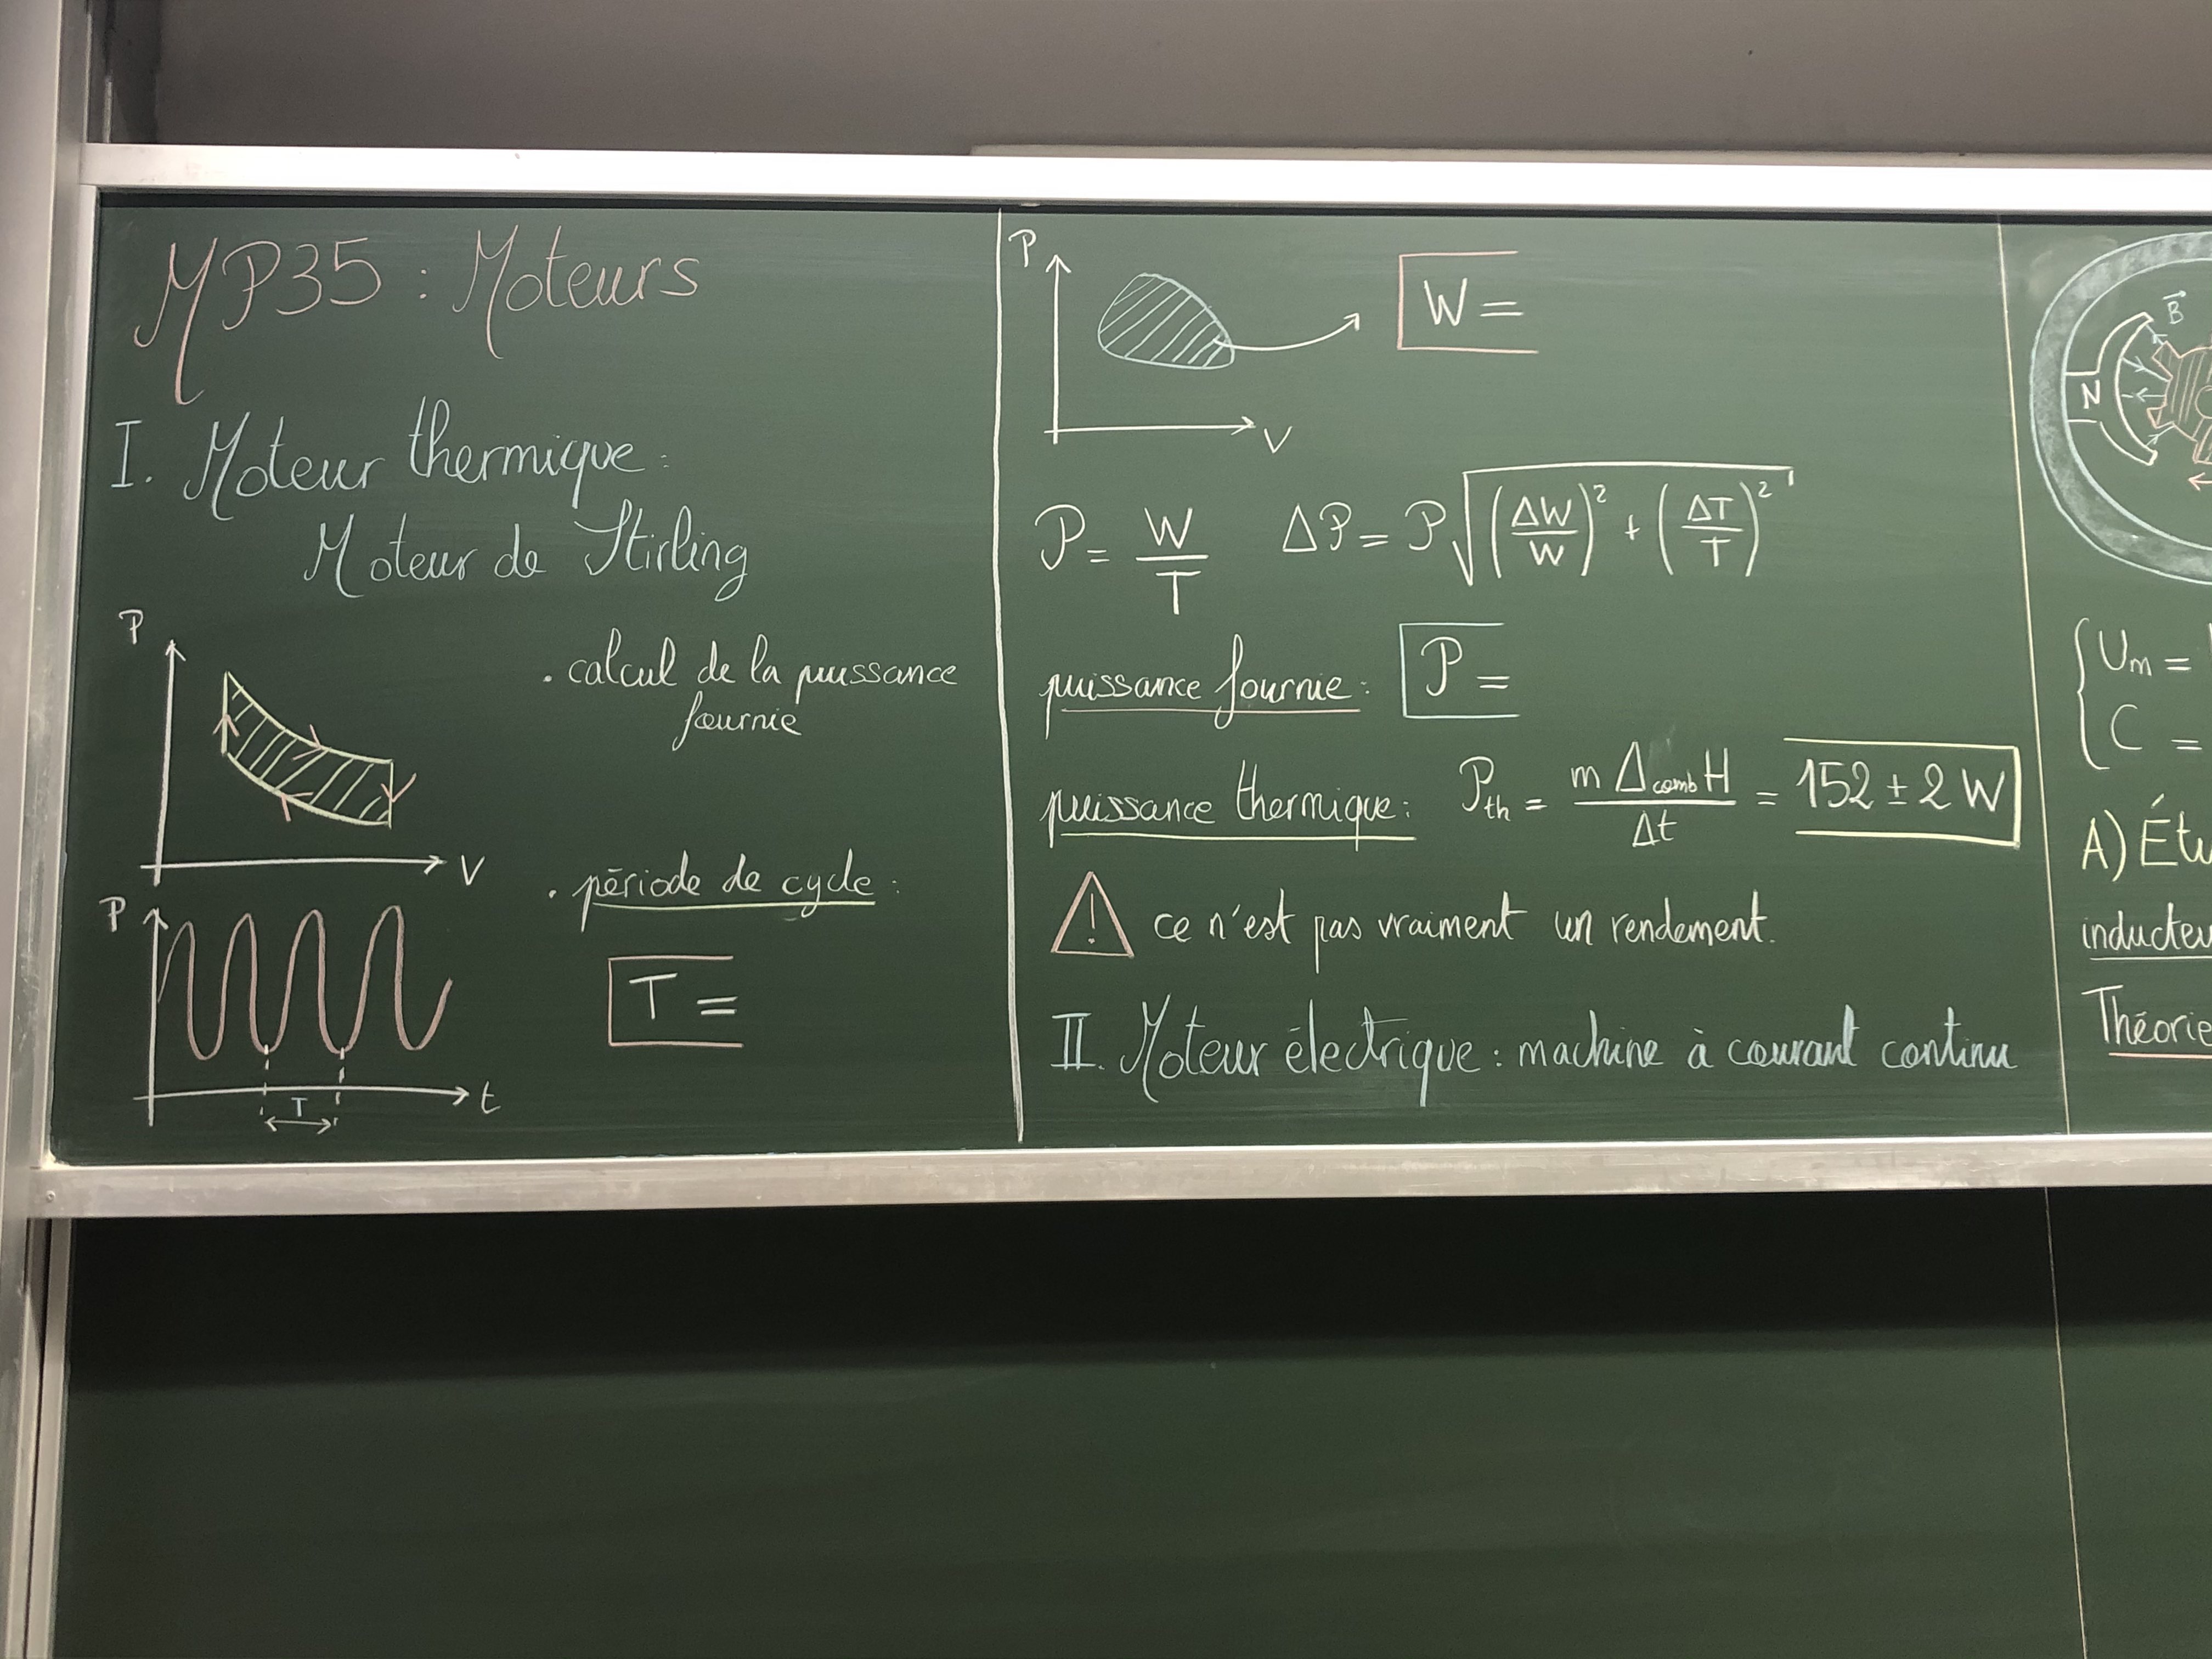 MP35 : Moteurs
I. Moteur thermique :
Moteur de Stirling
P
V
. calcul de la puissance
fournie
P
t
T
. période de cycle :
T =
P
V
W =
P = W/T   ΔP = P √((ΔW/W)² + (ΔT/T)²)
puissance fournie : P =
puissance thermique : Pth = m ΔcombH / Δt = 152 ± 2 W
! ce n'est pas vraiment un rendement.
II. Moteur électrique : machine à courant continu
B
N
Um =
C =
A) 
Théorie